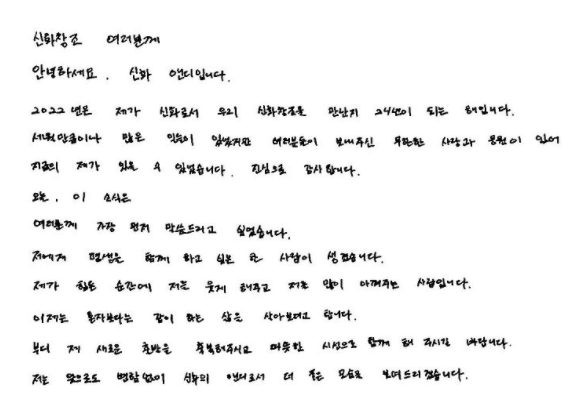 신화창조 여러분께
안녕하세요. 신화 앤디입니다.
2022년은 제가 신화로서 우리 신화창조를 만난지 24년이 되는 해입니다.
세월만큼이나 많은 일들이 있었지만 여러분들이 보내주신 무한한 사랑과 응원이 있어
지금의 제가 있을 수 있었습니다. 진심으로 감사합니다.
오늘, 이 소식은
여러분께 가장 먼저 말씀드리고 싶었습니다.
저에게 평생을 함께 하고 싶은 한 사람이 생겼습니다.
제가 힘든 순간에 저를 웃게 해주고 저를 많이 아껴주는 사람입니다.
이제는 혼자보다는 같이 하는 삶을 살아보려고 합니다.
부디 제 새로운 출발을 축복해주시고 따뜻한 시선으로 함께 해 주시길 바랍니다.
저는 앞으로도 변함없이 신화의 앤디로서 더 좋은 모습으로 보여드리겠습니다.